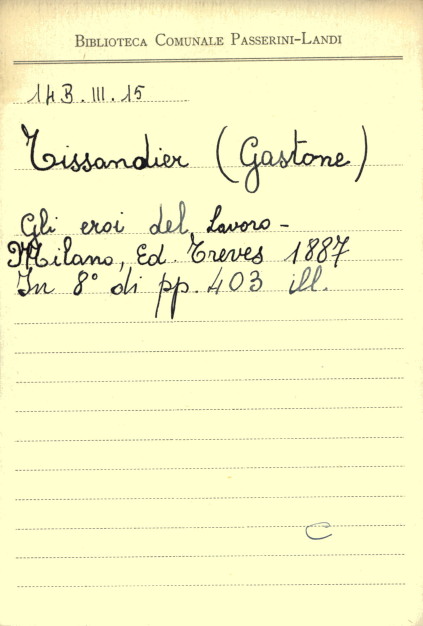 BIBLIOTECA COMUNALE PASSERINI-LANDI
14B.III.15
Tissandier (Gastone)
Gli eroi del Lavoro -
Milano, Ed. Treves 1887
In 8° di pp. 403 ill.
C